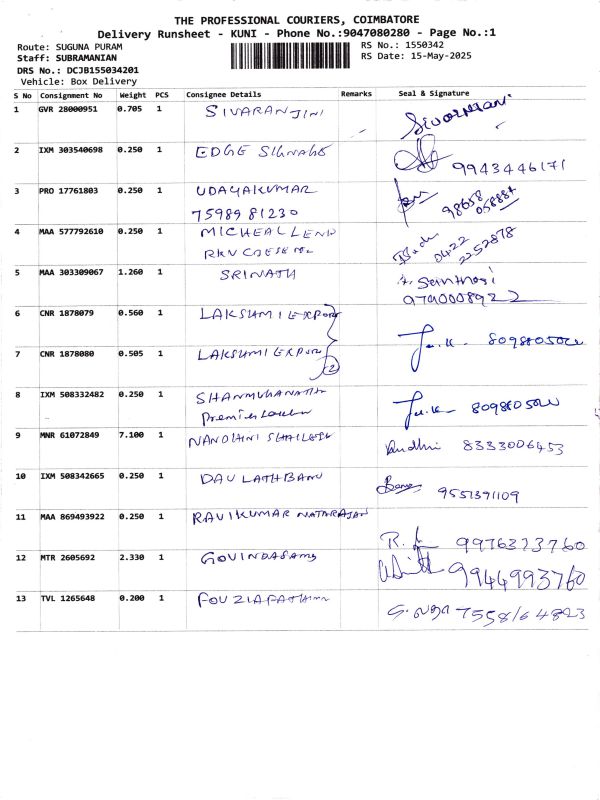 THE PROFESSIONAL COURIERS, COIMBATORE
Delivery Runsheet - KUNI - Phone No.:9047080280 - Page No.:1
Route: SUGUNA PURAM
RS No.: 1550342
Staff: SUBRAMANIAN
RS Date: 15-May-2025
DRS No.: DCJB155034201
Vehicle: Box Delivery
S No Consignment No Weight PCS Consignee Details Remarks Seal & Signature
1 GVR 28000951 0.705 1 SIVARANJINI
2 IXM 303540698 0.250 1 EDGE SIGNAGE 9943446171
3 PRO 17761803 0.250 1 UDAYAKUMAR
7598981230
4 MAA 577792610 0.250 1 MICHEAL 0422
2252878
5 MAA 303309067 1.260 1 SRINATH Santhosi
6 CNR 1878079 0.560 1 LAKSHMI EXPORT
7 CNR 1878080 0.505 1 LAKSHMI EXPORT
2
8 IXM 508332482 0.250 1 SHANMUGANATH
Premier
9 MNR 61072849 7.100 1 NANDHINI 8333006453
10 IXM 508342665 0.250 1 DAULATHBANU 9551391109
11 MAA 869493922 0.250 1 RAVIKUMAR NATARAJAN
12 MTR 2605692 2.330 1 GOVINDASAMY 9944993760
13 TVL 1265648 0.200 1 FOUZIAFATHIMA